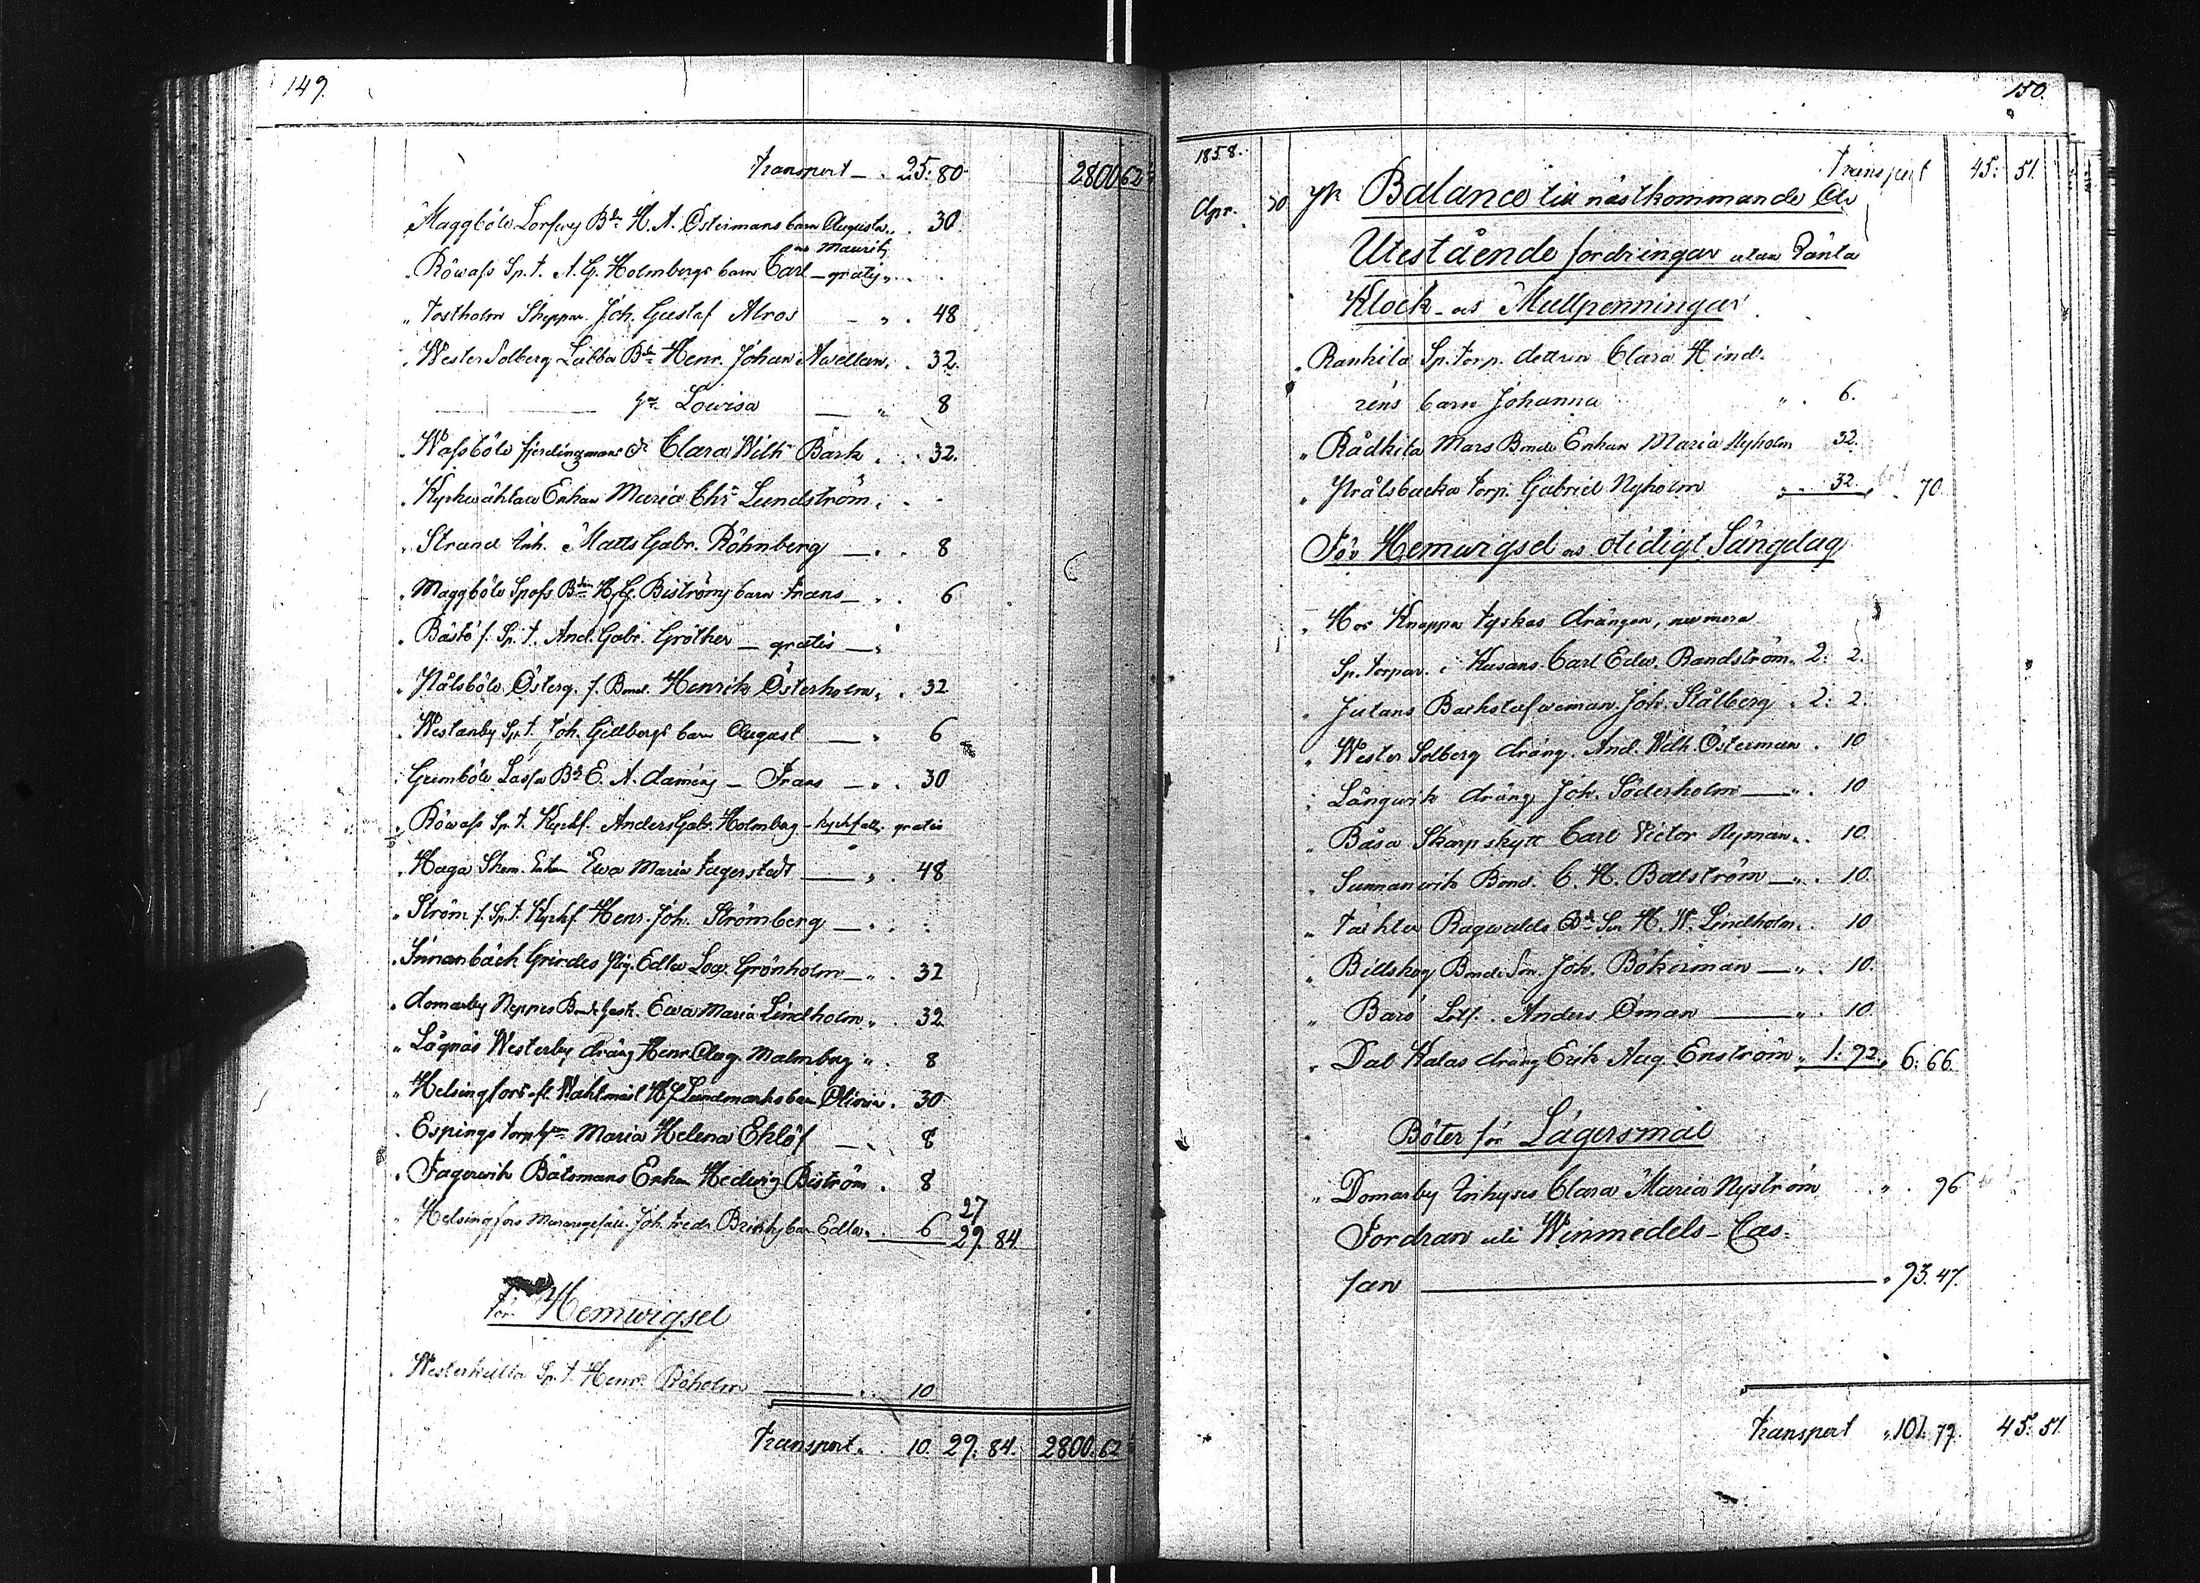 149.
Transport 25: 80 2800 62
Maggböle Lorfvig Bde H. A. Östermans barn Augusta 30.
Röwass Sp. T. A. G. Holmbergs barn Carl Mauritz gratis
" Tostholm Skeppar. Joh. Gustaf Alros " 48
" Wester Solberg Labba Bde Henr. Johan Awellan 32.
Lowisa " 8
" Wassböle fjerdingmans Clara Wilh. Bärk 32.
Enkan Maria Chr. Lundström
" Strand Inh. Matts Gabr. Röhnberg 8
" Maggböle Bde Biströms barn Frans 6
" Båstö f. Sp. T. And. Gabr. Gröther gratis
" Pålsböle Österg. f. Bond. Henrik Österholm 32
" Westanby Sp. T. Joh. Gillbergs barn August " 6
Grimböle Lassa Bde E. A. Frans 30
" Röwass Sp. T. Kyrkf. Anders Gabr. Holmberg gratis
" Haga Enkan Ewa Maria Fagerstedt " 48
" Ström f. Sp. T. Kyrkf. Henr. Joh. Strömberg
" Innanbäck Grindes Pig. Edla Low. Grönholm " 32
" Domarby Neppes Ewa Maria Lindholm " 32
" Lågnäs Westerby dräng Henr. Aug. Malmberg " 8
" Helsingfors Lundmarks barn Olivia 30
" Espings torp Maria Helena Eklöf 8
" Fagerwik Båtsmans Enkan Hedwig Biström 8
27
" Helsingfors Joh. Fredr. barn Edla 6 29. 84.
För Hemwigsel
Westerkulla Sp. T. Henr. Röholm 10
Transport 10. 29. 84. 2800. 62
150.
1858. Transport 45: 51.
Apr. 30 Balance till nästkommande År
Utestående fordringar utan Ränta
Klock- och Mullpenningar
" Rankila Sp. torp. dottren Clara Hind-
réns barn Johanna " 6.
" Rådkila Mars Bonde Enkan Maria Nyholm 32.
" Prålsbacka Torp. Gabriel Nyholm " 32. 70.
För Hemwigsel och otidigt Sångdag
" Hos Knappa Tyskas drängen, numera
Sp. torpar. i Kusans Carl Edw. Randström 2: 2.
" Jutans Backstufweman Joh. Stålberg 2: 2.
" Wester Solberg dräng. And. Wilh. Österman 10
" Långwik dräng Joh. Söderholm 10
" Båsa Skarpskytt Carl Victor Nyman 10.
" Sunnanwik Bond. C. H. Bollström 10.
" Täkter Ragwalds Bde Son H. W. Lindholm 10
" Billskog Bonde Son. Joh. Bökerman 10.
" Barö Lotf. Anders Öman " 10.
" Dal Kalas dräng Erik Aug. Enström 1: 92. 6: 66.
Böter för Lägersmål
" Domarby Inhyses Clara Maria Nyström " 96
Fordran uti Winmedels-Cas-
san " 93. 47.
Transport " 101. 79. 45. 51.